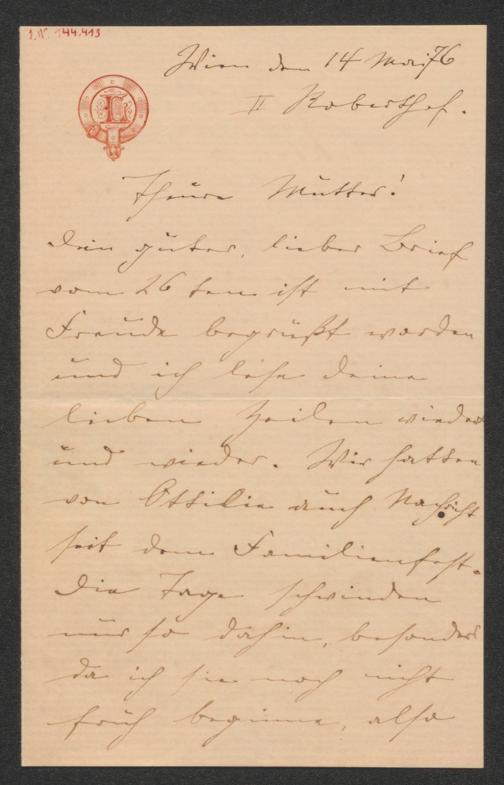 I.N. 144.413
Wien den 14 Mai 76
II Roberthof.
L
Theure Mutter!
Dein guter, lieber Brief
vom 26 ten ist mit
Freude begrüßt worden
und ich lese deine
lieben Zeilen wieder
und wieder. Wir hatten
von Ottilie auch Nachricht
seit dem Familienfest.
Die Tage schwinden
nur so dahin, besonders
da ich sie noch nicht
früh beginne, also